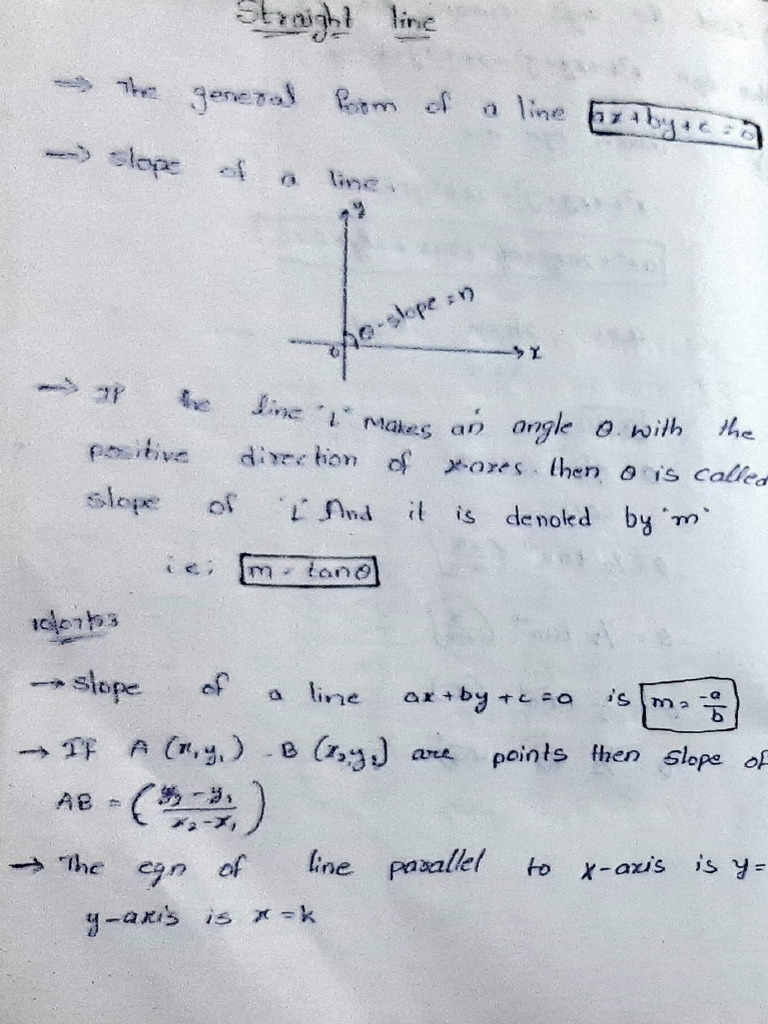 Straight line
→ The general form of a line ax+by+c=0
→ slope of a line.
y
θ-slope = n
0
x
→ If the line "L" Makes an angle θ with the
positive direction of x-axes. then θ is called
slope of "L" And it is denoted by "m"
i.e; m = tanθ
→ slope of a line ax+by+c=0 is m = -a/b
→ If A (x₁y₁) B (x₂y₂) are points then slope of
AB = (y₂-y₁/x₂-x₁)
→ The eqn of line parallel to x-axis is y=
y-axis is x=k